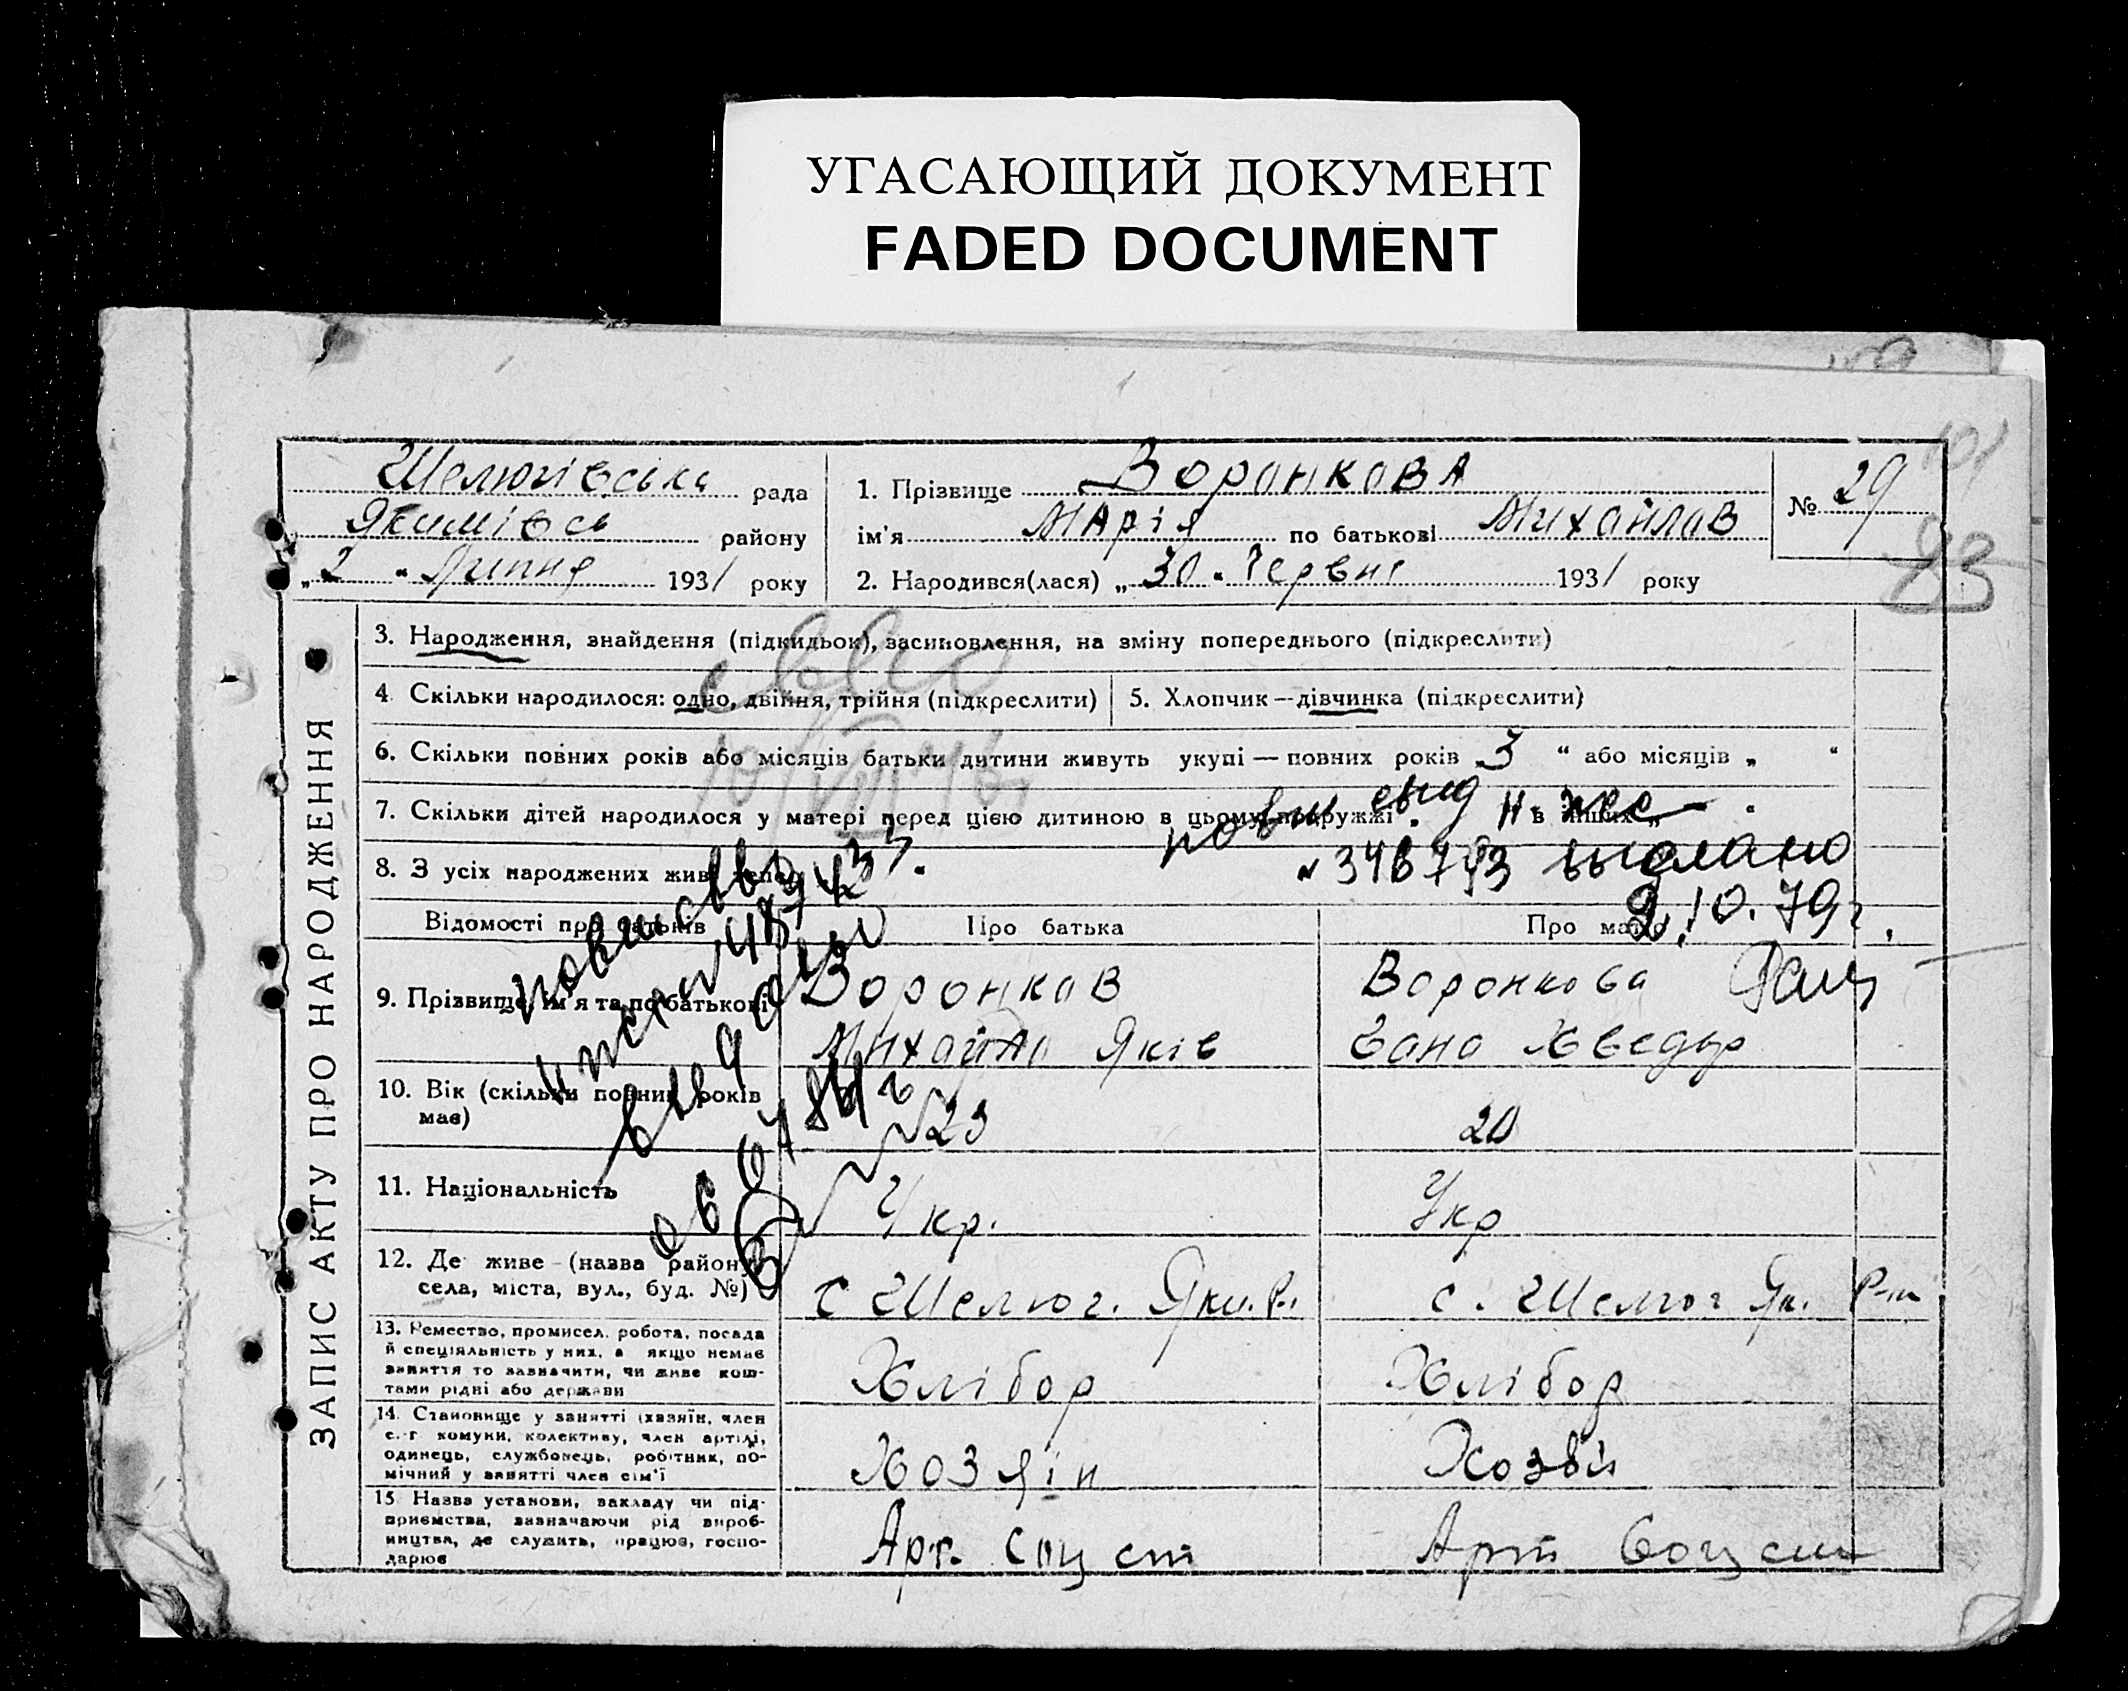 УГАСАЮЩИЙ ДОКУМЕНТ
FADED DOCUMENT
Шелюгівська рада
Якимівсь району
„2“ Липня 1931 року
1. Прізвище Воронкова
ім'я Марія по батькові Михайлов
2. Народився(лася) „30“ Червня 1931 року
№ 29
93
ЗАПИС АКТУ ПРО НАРОДЖЕННЯ
3. Народження, знайдення (підкидьок), засиновлення, на зміну попереднього (підкреслити)
4. Скільки народилося: одно, двійня, трійня (підкреслити)
5. Хлопчик—дівчинка (підкреслити)
6. Скільки повних років або місяців батьки дитини живуть укупі — повних років „3“ або місяців „ “
7. Скільки дітей народилося у матері перед цією дитиною в цьому подружжі в інших
8. З усіх народжених живі
повт свид
№ 346793 выслано
9.10.79г.
Відомості про батьків
Про батька
Про матір
9. Прізвище, ім'я та по батькові
Воронков
Михайло Яків
Воронкова
Ганна Хведір
10. Вік (скільки повних років має)
23
20
11. Національність
Укр.
Укр
12. Де живе (назва району, села, міста, вул., буд. №)
с Шелюг. Яки. Р-н
с. Шелюг Як. Р-н
13. Ремество, промисел, робота, посада
й спеціяльність у них, а якщо немає
заняття то зазначити, чи живе кош-
тами рідні або держави
Хлібор
Хлібор
14. Становище у занятті (хазяїн, член
с.-г. комуни, колективу, член артілі,
одинець, службовець, робітник, по-
мічний у занятті член сім'ї
Хозяін
Хозяй
15. Назва установи, закладу чи під-
приємства, зазначаючи рід вироб-
ництва, де служить, працює, госпо-
дарює
Арт. Соц ст
Арт Соц ст